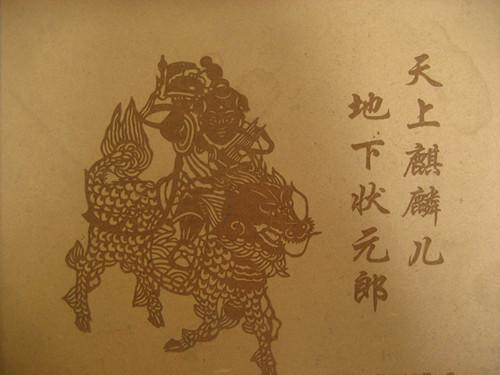 天上麒麟儿
地下状元郎